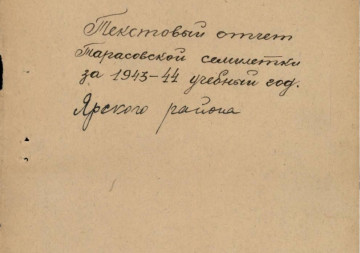 Текстовый отчет
Тарасовской семилетки
за 1943-44 учебный год.
Ярского района